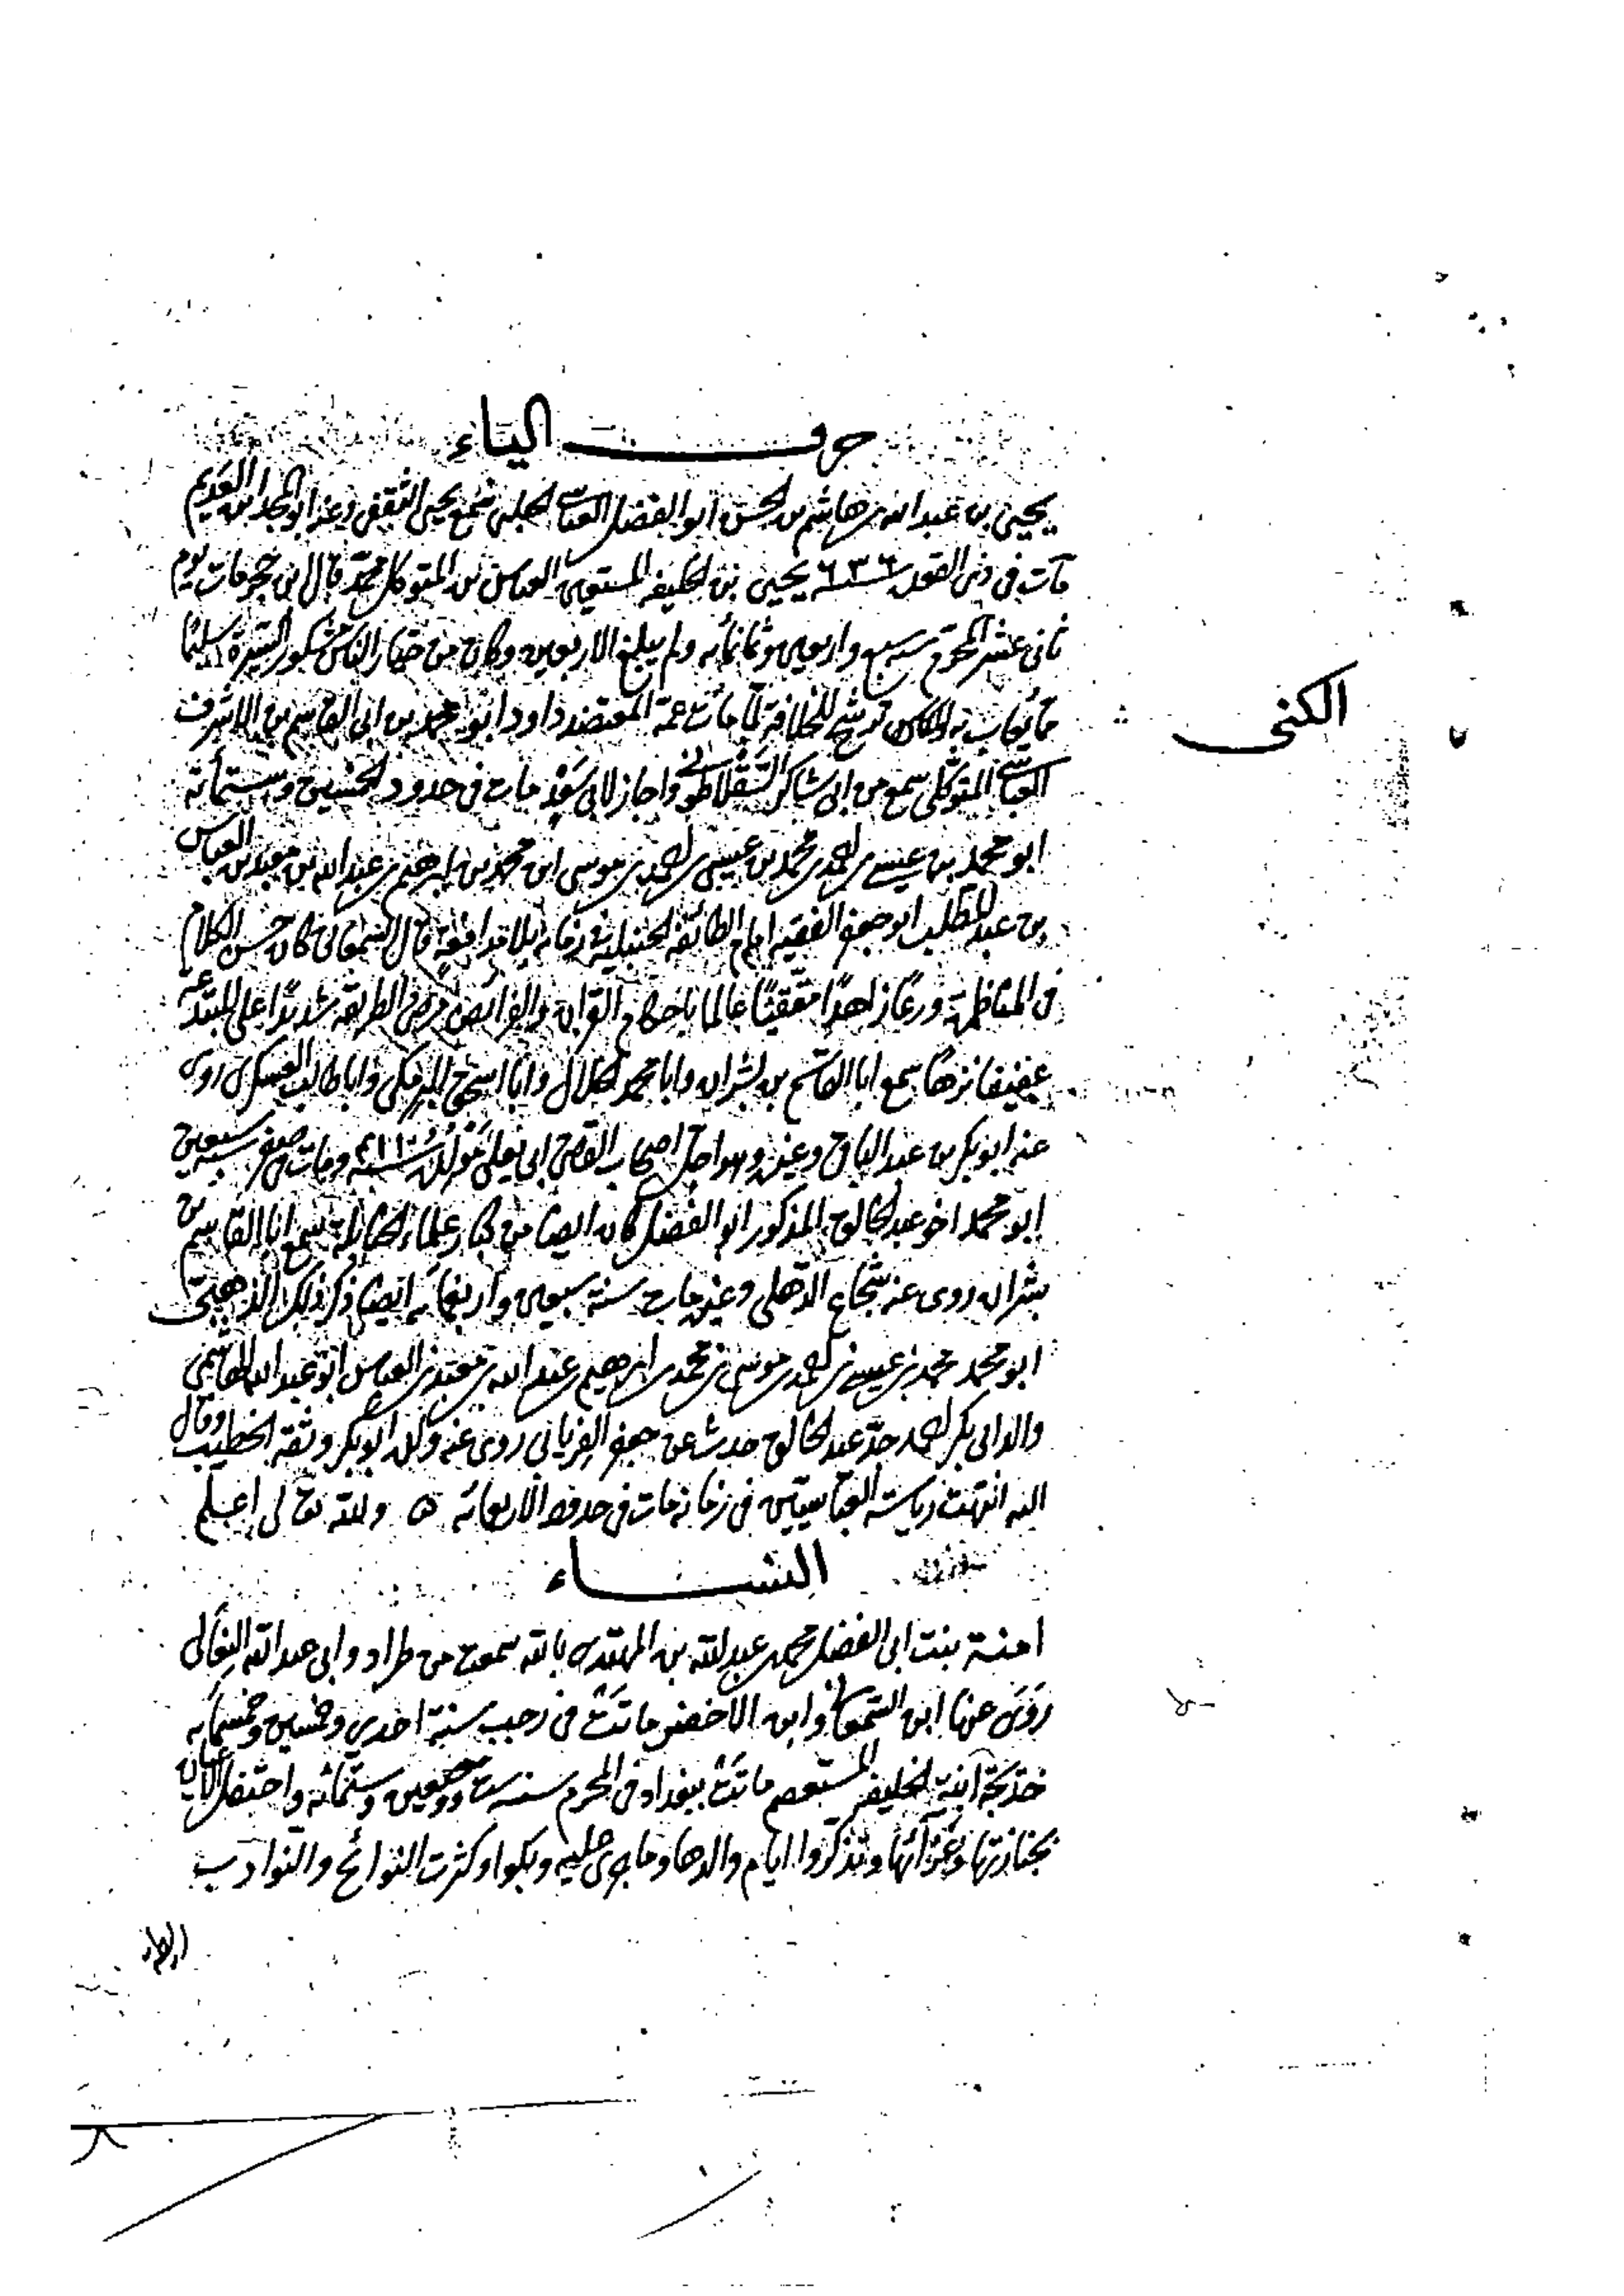 حرف الياء
يحيى بن عبد الله بن هاشم بن الحسن ابو الفضل العباسى الحلبى سمع يحيى الثقفى وعنه ابو المجد ابن العديم
مات فى ذى القعدة سنة ٦٣٦ يحيى بن الخليفة المستعين العباس بن المتوكل محمد قال ابن حجر مات يوم
ثانى عشر المحرم سنة سبع واربعين وثمانمائه ولم يبلغ الاربعين وكان من خيار الناس مشكور السيرة سليما
مما يعاب به وكان ترشح للخلافة لما مات عمه المعتضد داود ابو محمد بن ابى القاسم بن الاشرف
الكنى
العباسى المتوكلى سمع من ابى شاكر السقلاطونى واجاز لابى سعد مات فى حدود الخمسين وستمائة
ابو محمد بن عيسى بن احمد بن محمد بن عيسى بن احمد بن موسى ابن محمد بن ابرهيم بن عبد الله بن معبد بن العباس
بن عبد المطلب ابو جعفر الفقيه امام الطائفة الحنبلية فى زمانه بلا مدافعة قال السمعانى كان حسن الكلام
فى المناظرة ورعا زاهدا متقنا عالما باحكام القران والفرائض مرضى الطريقة شديدا على المبتدعه
عفيفا نزها سمع ابا القاسم بن بشران وابا محمد الخلال وابا اسحق البرمكى وابا طالب العسكرى روى
عنه ابو بكر بن عبد الباقى وغيره وهو اجل اصحاب القاضى ابى يعلى مولده سنة ٤١١ ومات فى صفر سنة سبعين
ابو محمد اخو عبد الخالق المذكور ابو الفضل كان ايضا من كبار علماء الحنابلة سمع ابا القاسم بن
بشران روى عنه شجاع الذهلى وغيره مات سنة سبعين واربعمائه ايضا ذكر ذلك الذهبى
ابو محمد محمد بن عيسى بن احمد بن موسى بن محمد بن ابرهيم بن عبد الله بن معبد بن العباس ابو عبد الله الهاشمى
والد ابى بكر احمد جد عبد الخالق حدث عن جعفر الفريابى روى عنه ولده ابو بكر وثقه الخطيب وقال
اليه انتهت رياسة العباسيين فى زمانه مات فى حدود الاربعمائه ه والله تعالى اعلم
النساء
امنة بنت ابى الفضل محمد بن عبد الله بن المهتدى بالله سمعت من طراد وابى عبد الله النعالى
روى عنها ابن السمعانى وابن الاخضر ماتت فى رجب سنة احدى وخمسين وخمسمائه
خديجة ابنة الخليفة المستعصم ماتت ببغداد فى المحرم سنة ست وسبعين وستمائه واحتفل الاعيان
بجنازتها وعزائها وتذكروا ايام والدها وما جرى عليه وبكوا وكثرت النوائح والنوادب